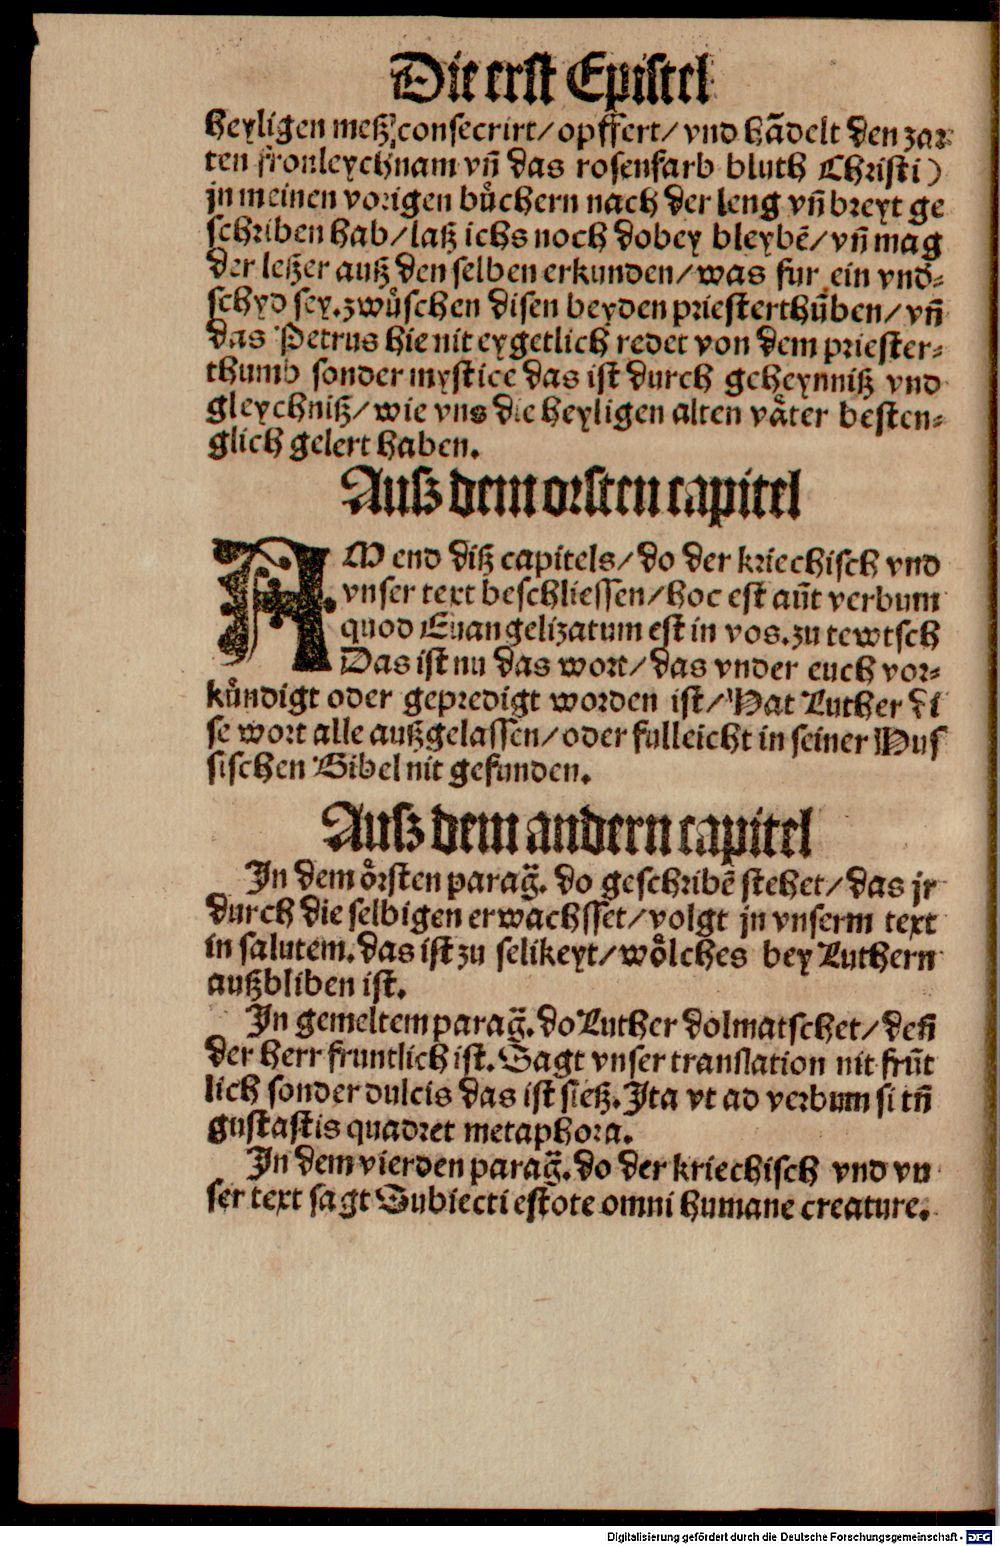 Die erst Epistel
heyligen meß, consecrirt/ opffert/ vnd hãdelt den zar⸗
ten fronleychnam vñ das rosenfarb bluth Christi)
jn meinen vorigen bůchern nach der leng vñ breyt ge
schriben hab/ laß ichs noch dobey bleybẽ/ vñ mag
der leßer auß den selben erkunden/ was fur ein vnd⸗
schyd sey. zwůschen disen beyden priesterthũben/ vñ
das Petrus hie nit eygetlich redet von dem priester⸗
thumb sonder mystice das ist durch geheynniß vnd
gleychniß/ wie vns die heyligen alten våter besten⸗
glich gelert haben.
Auß dem orsten capitel
AM end diß capitels/ do der kriechisch vnd
vnser text beschliessen/ hoc est aũt verbum
quod Euangelizatum est in vos. zu tewtsch
Das ist nu das wort/ das vnder euch vor⸗
kůndigt oder gepredigt worden ist/ Hat Luther di
se wort alle außgelassen/ oder fulleicht in seiner Hus
sischen Bibel nit gefunden.
Auß dem andern capitel
In dem örsten parag̃. do geschribẽ stehet/ das jr
durch die selbigen erwachsset/ volgt jn vnserm text
in salutem. das ist zu selikeyt/ wölches bey Luthern
außbliben ist.
In gemeltem parag̃. do Luther dolmatschet/ deñ
der herr fruntlich ist. Sagt vnser translation nit frũt
lich sonder dulcis das ist sieß. Ita vt ad verbum si tñ
gustastis quadret metaphora.
In dem vierden parag̃. do der kriechisch vnd vn
ser text sagt Subiecti estote omni humane creature.
Digitalisierung gefördert durch die Deutsche Forschungsgemeinschaft - DFG